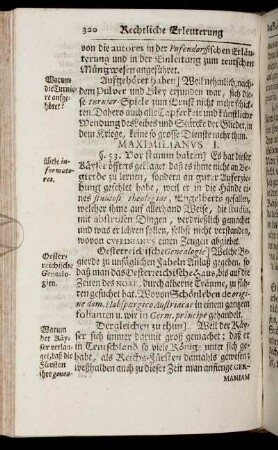 320 Rechtliche Erleuterung
von die autores in der Pufendorffischen Erläu-
terung und in der Einleitung zum teutschen
Müntzwesen angeführet.
Warum
die Turnie-
re aufge-
höret?
Aufgehöret haben] Weil nehmlich, nach-
dem Pulver und Bley erfunden war, sich die-
se turnier-Spiele zum Ernst nicht mehr schick-
ten. Dahero auch alle Tapferkeit und künstliche
Wendung des Leibes und Stärcke der Glieder, in
dem Kriege, keine so grosse Dienste mehr thun.
MAXIMILIANUS I.
üble in-
formato-
res.
§. 53. Vor stumm halten] Es hat dieser
Käyser öffters geklaget, daß es ihme nicht an Be-
gierde zu lernen, sondern an guter Auferzie-
hung gefehlet habe, weil er in die Hände eines
theologiae, Engelberts gefallen,
welcher ihme auf allerhand Weise, die studia,
mit abstrusen Dingen, verdrießlich gemachet
und was er lehren sollen, selbst nicht verstanden,
wovon CUSPINIANUS einen Zeugen abgiebet.
Oester-
reichische
Genealo-
gien.
Oesterreichische Genealogie] Welche Be-
gierde zu unzäglichen Fabeln Anlaß gegeben, in-
daß man das Oesterreichische Haus, bis auf die
Zeiten des NOAE, durch alberne Träume, zu füh-
ren gesuchet hat. Wovon Schönleben de origi-
ne dom. Habspurgico Austriacae in einem gantzen
folianten u. wir in Germ. principe gehandelt.
Warum
der Käy-
ser verlan-
get, daß die
Fürsten
ihre genea-
Dergleichen zu thun] Weil der Käy-
ser sich immer darmit groß gemachet; daß er
in Teutschland so viele Könige unter sich ge-
habt, als Reichs-Fürsten damahls gewesen;
weßhalben auch zu dieser Zeit man anfienge GER-
MANIAM